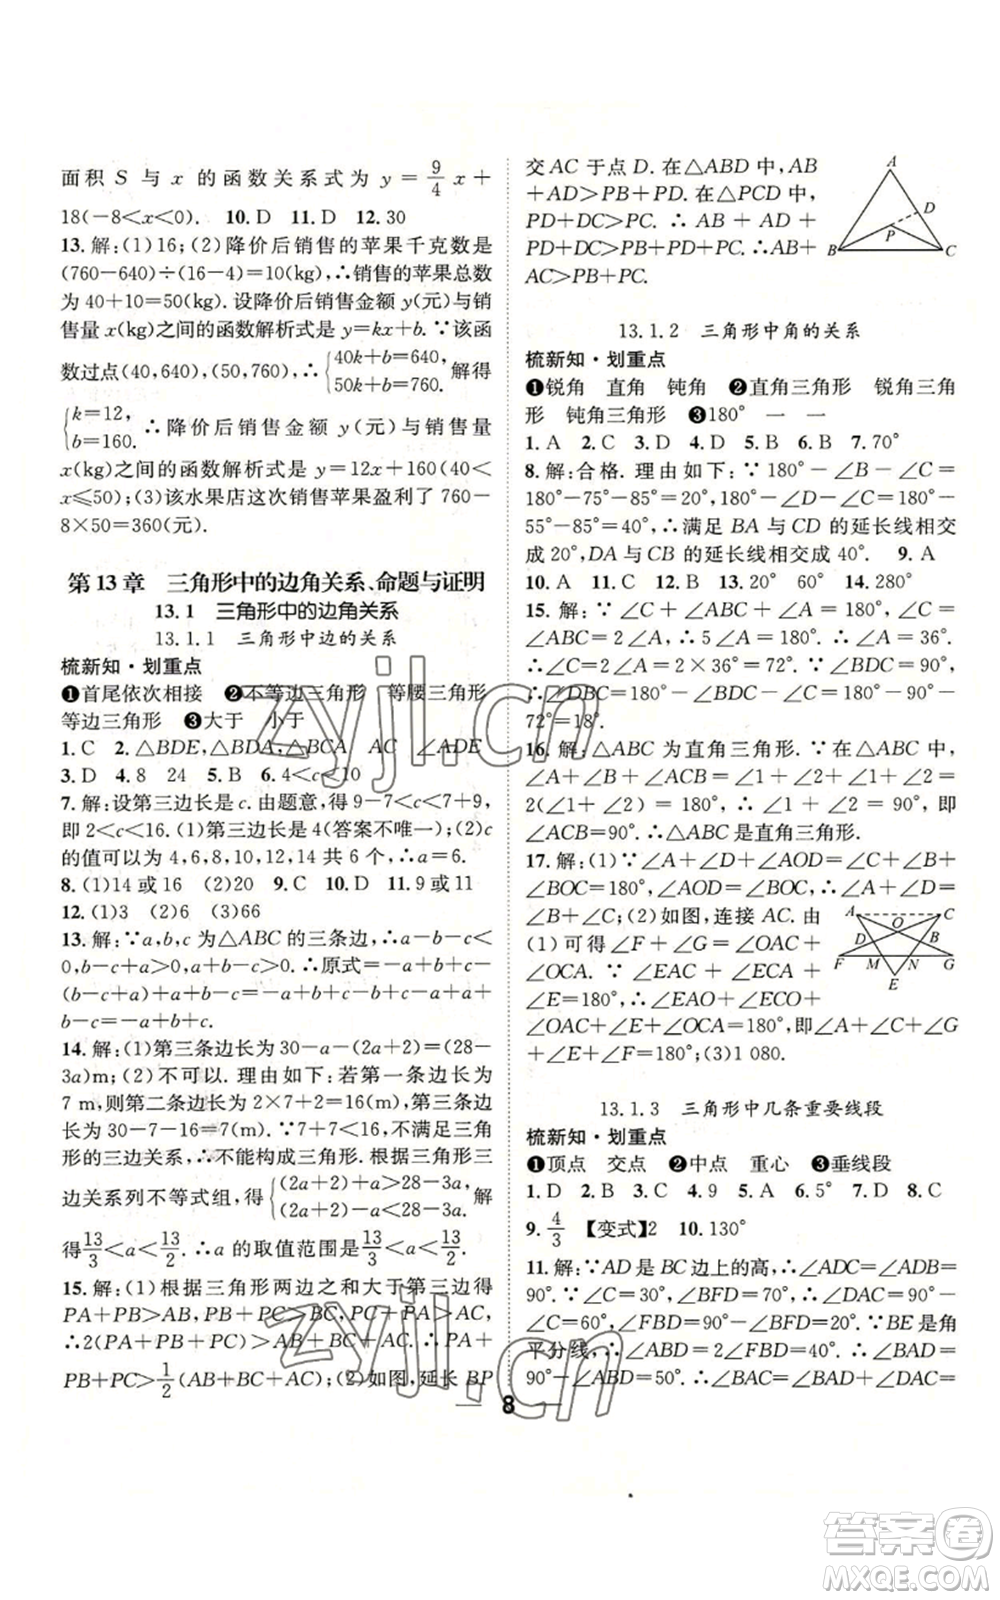 面积 S 与 x 的函数关系式为 y = 9/4 x +
18(-8<x<0). 10. D 11. D 12. 30
13. 解:(1)16;(2)降价后销售的苹果千克数是
(760-640)÷(16-4)=10(kg),∴销售的苹果总数
为 40+10=50(kg). 设降价后销售金额 y(元)与销
售量 x(kg)之间的函数解析式是 y=kx+b. ∵该函
数过点(40,640),(50,760),∴{40k+b=640, 50k+b=760. 解得
{k=12, b=160. ∴降价后销售金额 y(元)与销售量
x(kg)之间的函数解析式为 y=12x+160(40<
x≤50);(3)该水果店这次销售苹果盈利了 760-
8×50=360(元).
第 13 章 三角形中的边角关系、命题与证明
13.1 三角形中的边角关系
13.1.1 三角形中边的关系
梳新知·划重点
❶首尾依次相接 ❷不等边三角形 等腰三角形
等边三角形 ❸大于 小于
1. C 2. △BDE,△BDA,△BCA AC ∠ADE
3. D 4. 8 24 5. B 6. 4<c<10
7. 解:设第三边长是 c. 由题意,得 9-7<c<7+9,
即 2<c<16. (1)第三边长是 4(答案不唯一);(2)c
的值可以为 4,6,8,10,12,14 共 6 个,∴a=6.
8. (1)14 或 16 (2)20 9. C 10. D 11. 9 或 11
12. (1)3 (2)6 (3)66
13. 解:∵a,b,c 为△ABC 的三条边,∴a-b-c<
0,b-c-a<0,c-a-b<0. ∴原式=-a+b+c-
(b-c+a)+a+b-c=-a+b+c-b+c-a+a+
b-c=-a+b+c.
14. 解:(1)第三条边长为 30-a-(2a+2)=(28-
3a)m;(2)不可以. 理由如下:若第一条边长为
7 m,则第二条边长为 2×7+2=16(m),第三条边
长为 30-7-16=7(m). ∵7+7<16,不满足三角
形的三边关系,∴不能构成三角形. 根据三角形三
边关系列不等式组,得{(2a+2)+a>28-3a, (2a+2)-a<28-3a. 解
得 13/3<a<13/2. ∴a 的取值范围是 13/3<a<13/2.
15. 解:(1)根据三角形两边之和大于第三边得
PA+PB>AB,PB+PC>BC,PA+PC>AC,
∴2(PA+PB+PC)>AB+BC+AC. ∴PA+
PB+PC>1/2(AB+BC+AC);(2)如图,延长 BP
交 AC 于点 D. 在△ABD 中,AB
+AD>PB+PD. 在△PCD 中,
PD+DC>PC. ∴AB+AD+
PD+DC>PB+PD+PC. ∴AB+
AC>PB+PC.
A
D
P
B C
13.1.2 三角形中角的关系
梳新知·划重点
❶锐角 直角 钝角 ❷直角三角形 锐角三角
形 钝角三角形 ❸180° 一 一
1. A 2. C 3. D 4. D 5. B 6. B 7. 70°
8. 解:合格. 理由如下:∵180°-∠B-∠C=
180°-75°-85°=20°,180°-∠D-∠C=180°-
55°-85°=40°,∴满足 BA 与 CD 的延长线相交
成 20°,DA 与 CB 的延长线相交成 40°. 9. A
10. A 11. A 12. C 13. D 14. 60°
15. 解:∵∠C=∠ABC=2∠A,∴∠C+
∠ABC+∠A=5∠A=180°. ∴∠A=36°.
∴∠C=∠ABC=2∠A=2×36°=72°. ∵BD⊥
AC,∴∠BDC=90°. ∴∠DBC=90°-∠C=90°-
72°=18°.
16. 解:△ABC 为直角三角形. ∵在△ABC 中,
∠A+∠B+∠ACB=∠A+∠1+∠2+∠B=
2(∠1+∠2)=180°,∴∠1+∠2=90°,即
∠ACB=90°. ∴△ABC 是直角三角形.
17. 解:(1)∵∠A+∠D+∠AOD=∠C+∠B+
∠BOC=180°,∠AOD=∠BOC,∴∠A+∠D=
∠B+∠C;(2)如图,连接 AC. 由
(1)可得∠F+∠G=∠OAC+
∠OCA. ∵∠EAC+∠ECA+
∠E=180°,∴∠EAO+∠ECO+
∠OAC+∠E+∠OCA=180°,即∠EAO+∠ECO+∠F+∠G+
∠E+∠C+∠F=180°;(3)1 080.
A C
O
D B
F M N G
E
13.1.3 三角形中几条重要线段
梳新知·划重点
❶顶点 交点 ❷中点 重心 ❸垂线段
1. D 2. B 3. C 4. 9 5. A 6. 5° 7. D 8. C
9. 4/3 【变式】2 10. 130°
11. 解:∵AD 是 BC 边上的高,∴∠ADC=∠ADB=
90°. ∵∠C=60°,∠BFD=70°,∴∠CAD=90°-
∠C=60°,∠FBD=90°-∠BFD=20°. ∵BE 是角
平分线,∴∠ABD=2∠FBD=40°. ∴∠BAD=
90°-∠ABD=50°. ∴∠BAC=∠BAD+∠DAC=
8
zyjl.cn
zyjl.cn
答案圈
MXQE.COM